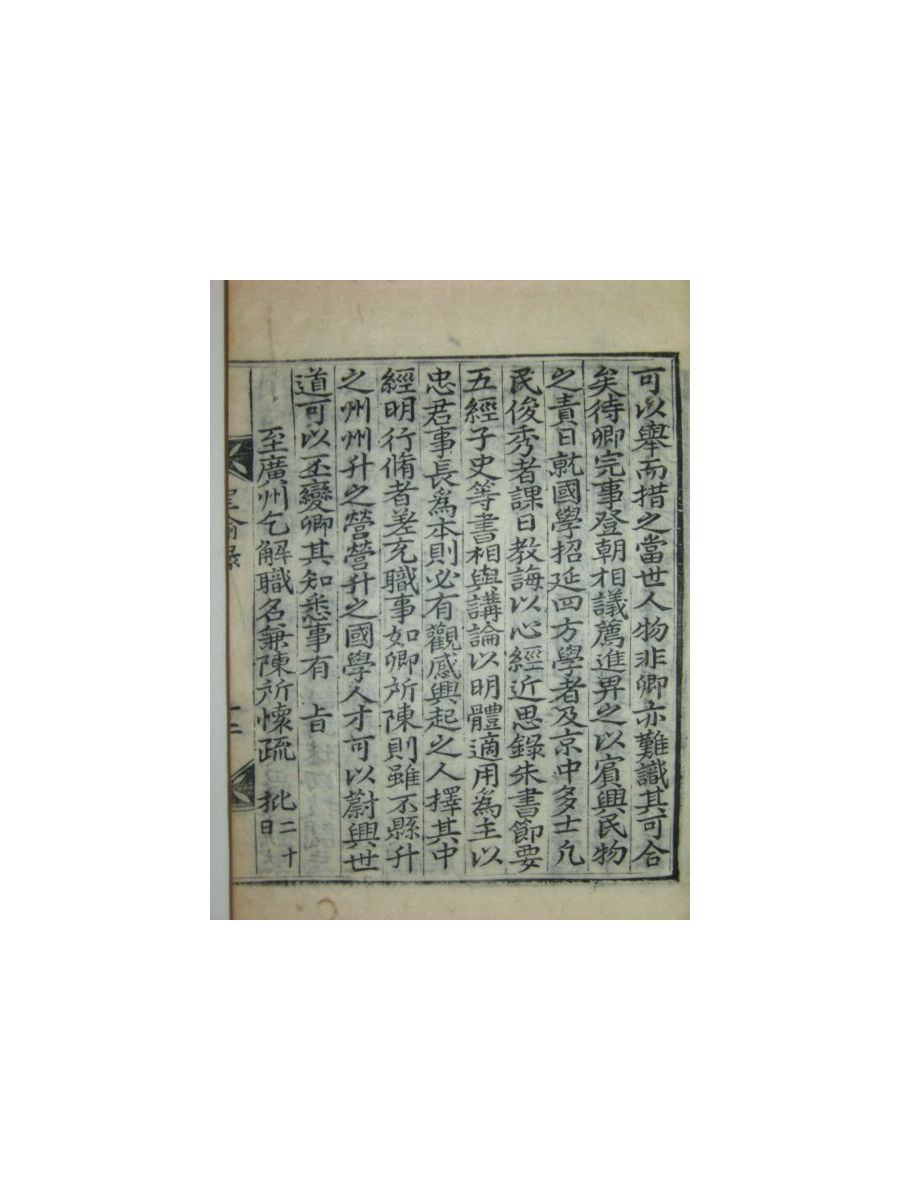 可以舉而措之當世人物非卿亦難識其可合
矣待卿完事登朝相議薦進畀之以賓興民物
之責日就國學招延四方學者及京中多士凡
民俊秀者課日教誨以心經近思錄朱書節要
五經子史等書相與講論以明體適用爲主以
忠君事長爲本則必有觀感興起之人擇其中
經明行脩者差充職事如卿所陳則雖不縣升
之州州升之營營升之國學人才可以蔚興世
道可以丕變卿其知悉事有 旨
至廣州乞解職名兼陳所懷疏 批二十日